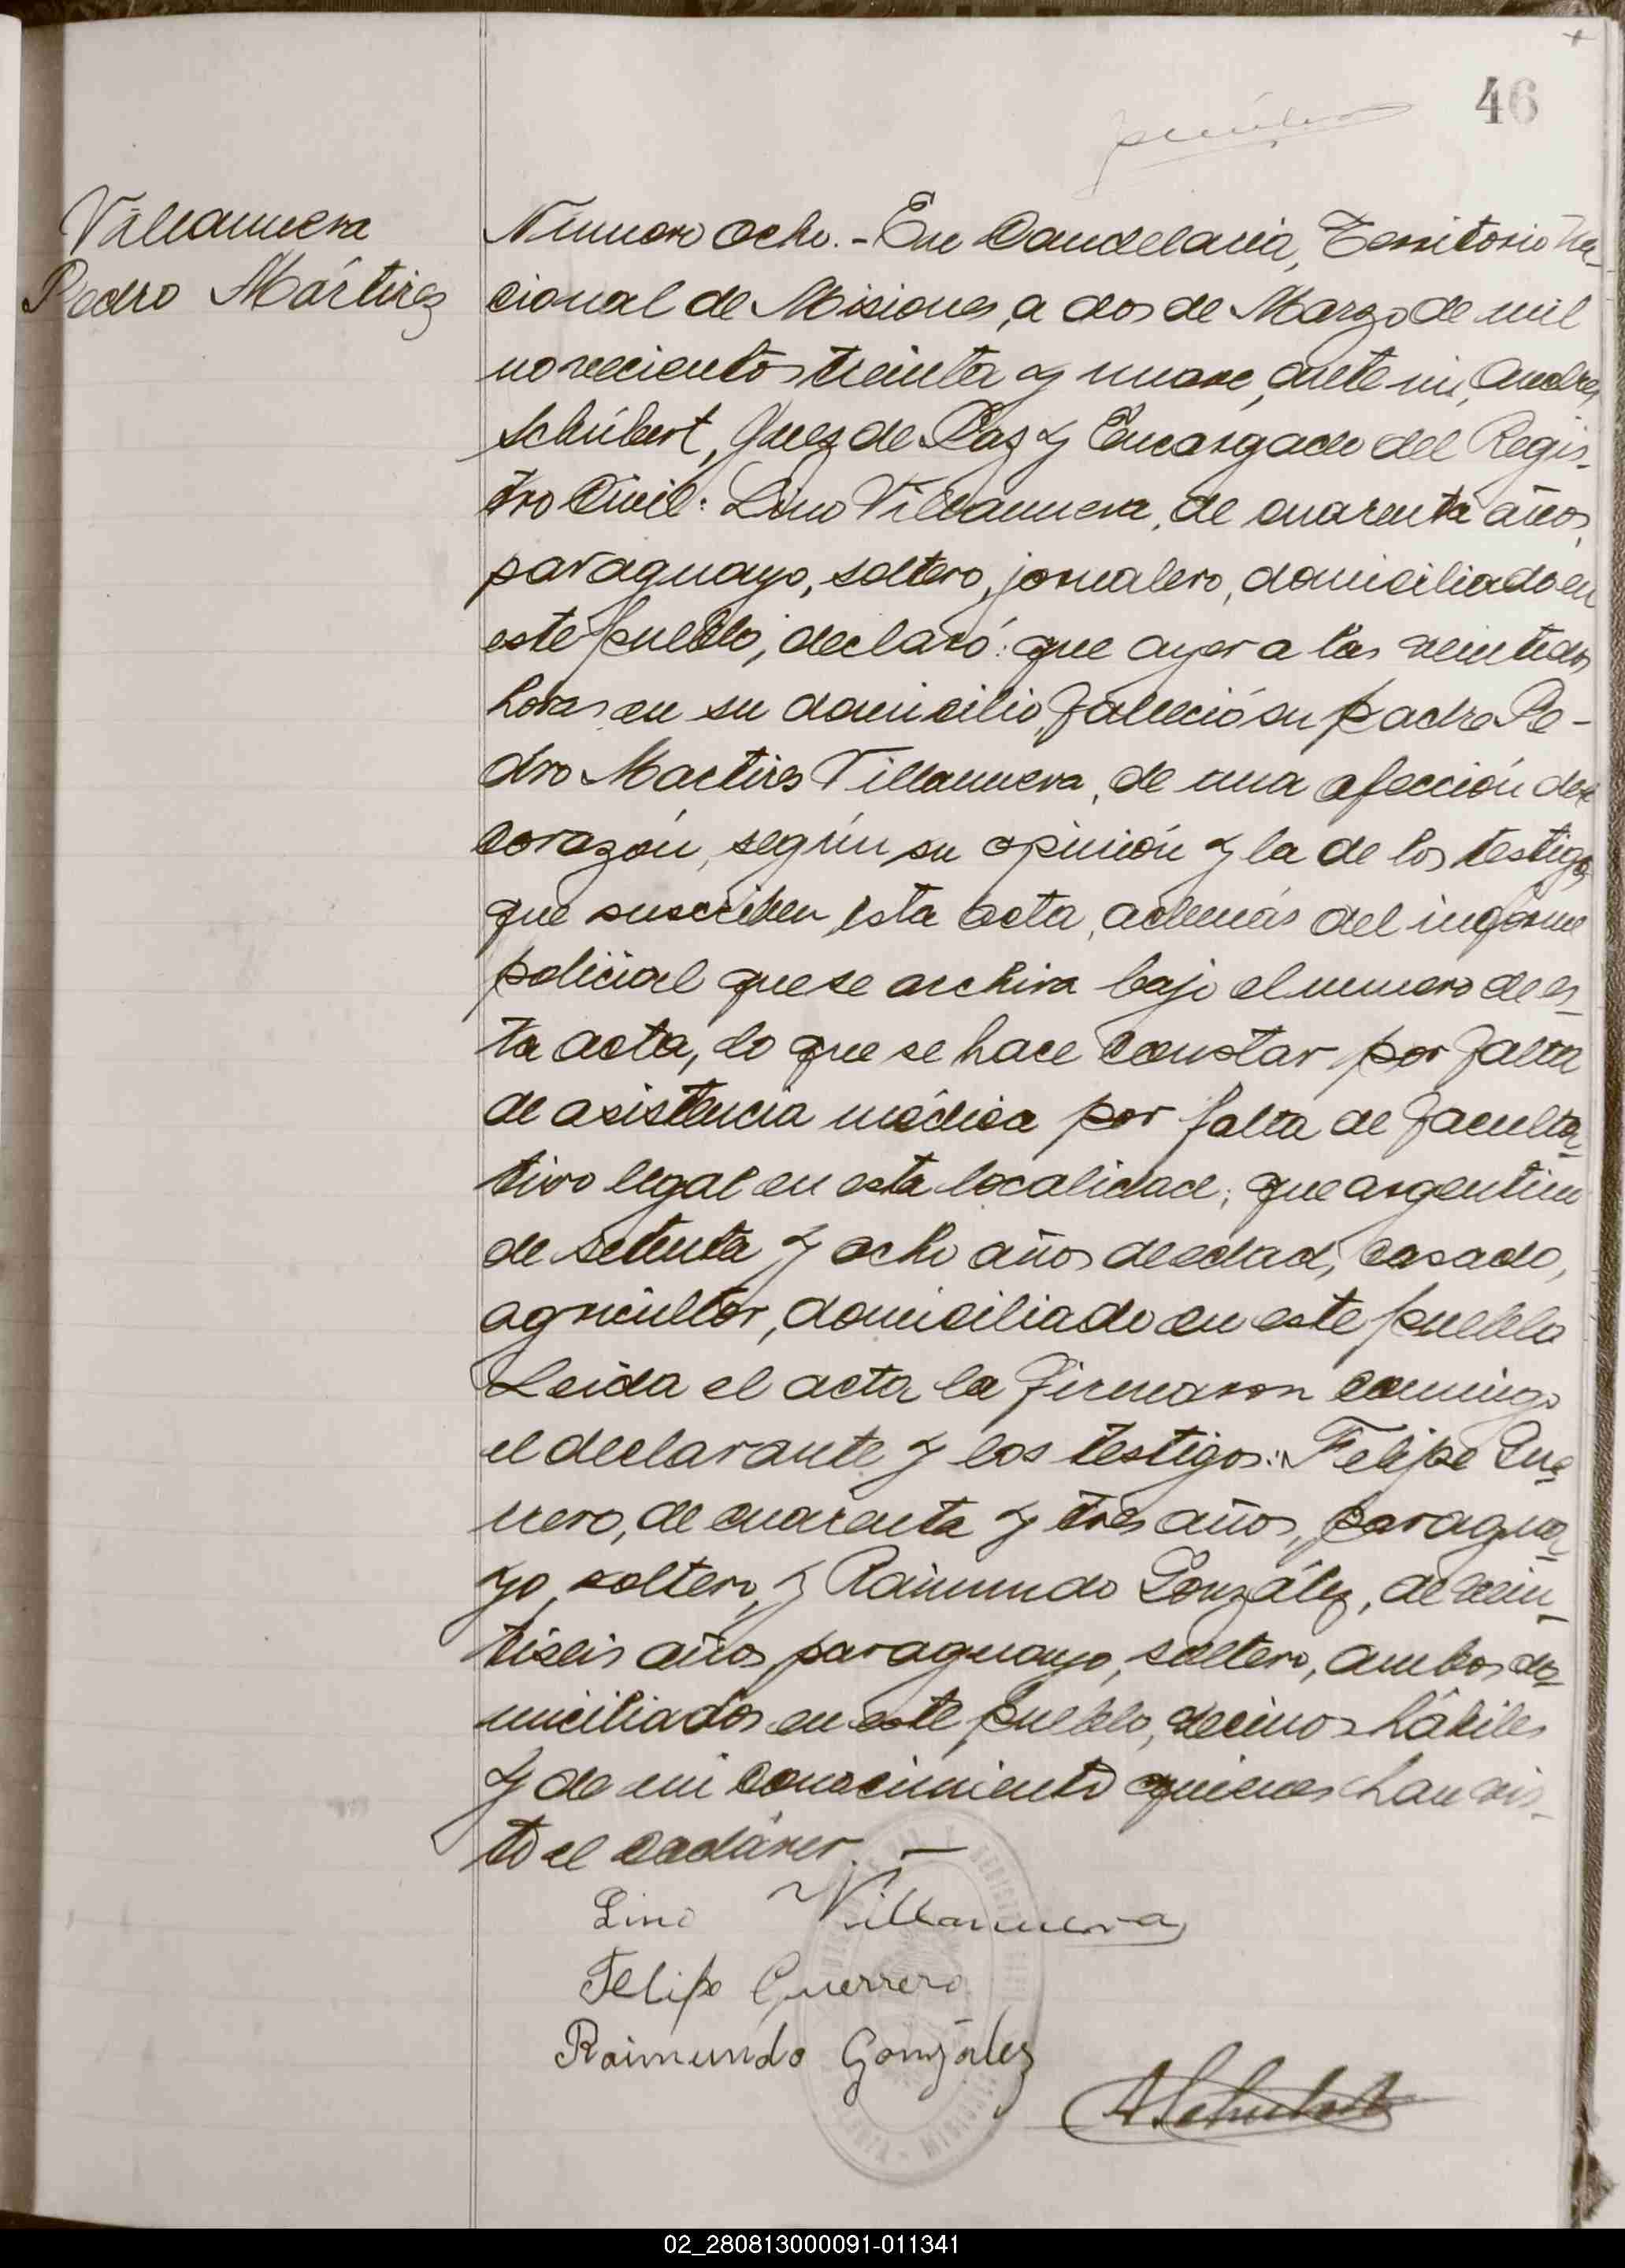 46
Villanueva
Pedro Mártires
Número ocho. - En Candelaria, Territorio Na-
cional de Misiones, a dos de Marzo de mil
novecientos treinta y nueve, ante mi, Andres
Schubert, Juez de Paz y Encargado del Regis-
tro Civil: Lino Villanueva, de cuarenta años,
paraguayo, soltero, jornalero, domiciliado en
este pueblo, declaró: que ayer a las veintidos
horas en su domicilio, falleció su padre Pe-
dro Martires Villanueva, de una afección del
corazón, según su opinión y la de los testigos
que suscriben esta acta, además del informe
policial que se archiva bajo el numero de es-
ta acta, lo que se hace constar por falta
de asistencia médica por falta de faculta-
tivo legal en esta localidad; que argentino
de setenta y ocho años de edad, casado,
agricultor, domiciliado en este pueblo
Leida el acta la firmaron conmigo
el declarante y los testigos: Felipe Gue-
rrero, de cuarenta y tres años, paragua-
yo, soltero, y Raimundo González, de vein-
tiseis años, paraguayo, soltero, ambos do-
miciliados en este pueblo, vecinos hábiles
y de mi conocimiento quienes han vis-
to el cadáver. —
Lino Villanueva
Felipe Guerrero
Raimundo González
ASchubert
02_280813000091-011341